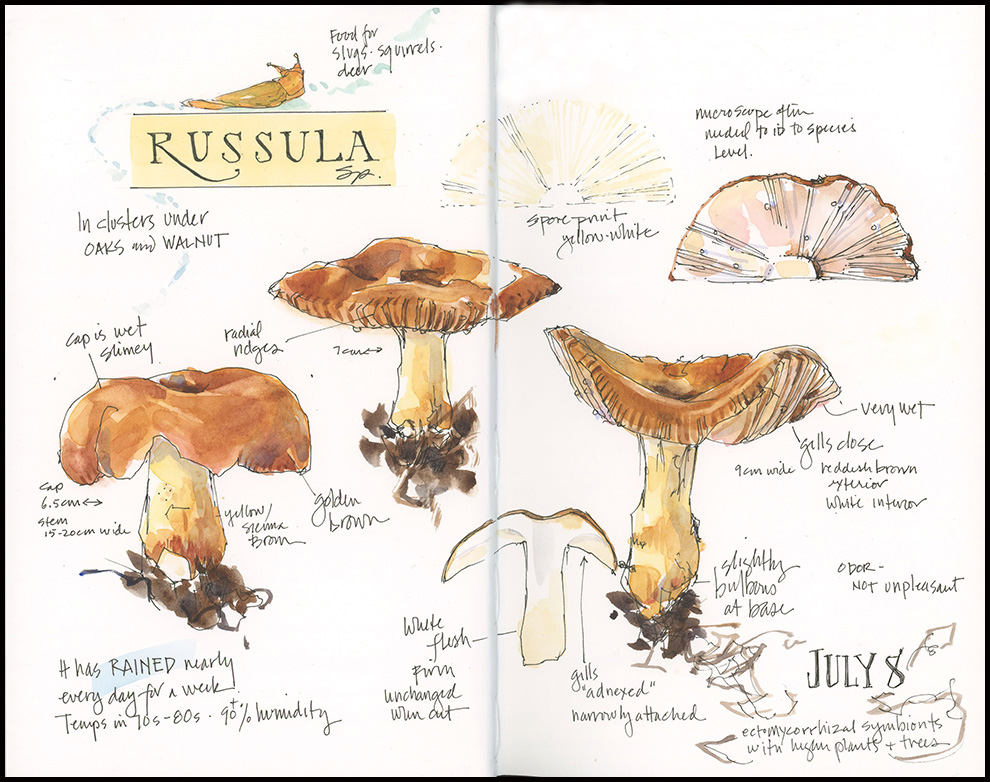 Food for
slugs · squirrels ·
deer
RUSSULA
Sp.
In clusters under
OAKS and WALNUT
cap is wet
slimey
radial
ridges
7cm
cap
6.5cm
stem
15-20cm wide
yellow/
sienna
Brown
golden
brown
It has RAINED nearly
every day for a week.
Temps in 70s-80s · 90+% humidity
spore print
yellow-white
microscope often
needed to ID to species
Level.
very wet
gills close
reddish brown
exterior
white interior
9cm wide
slightly
bulbous
at base
ODOR -
NOT unpleasant
White
flesh
Firm
unchanged
when cut
gills
"adnexed"
narrowly attached
JULY 8
ectomycorrhizal symbionts
with higher plants + trees